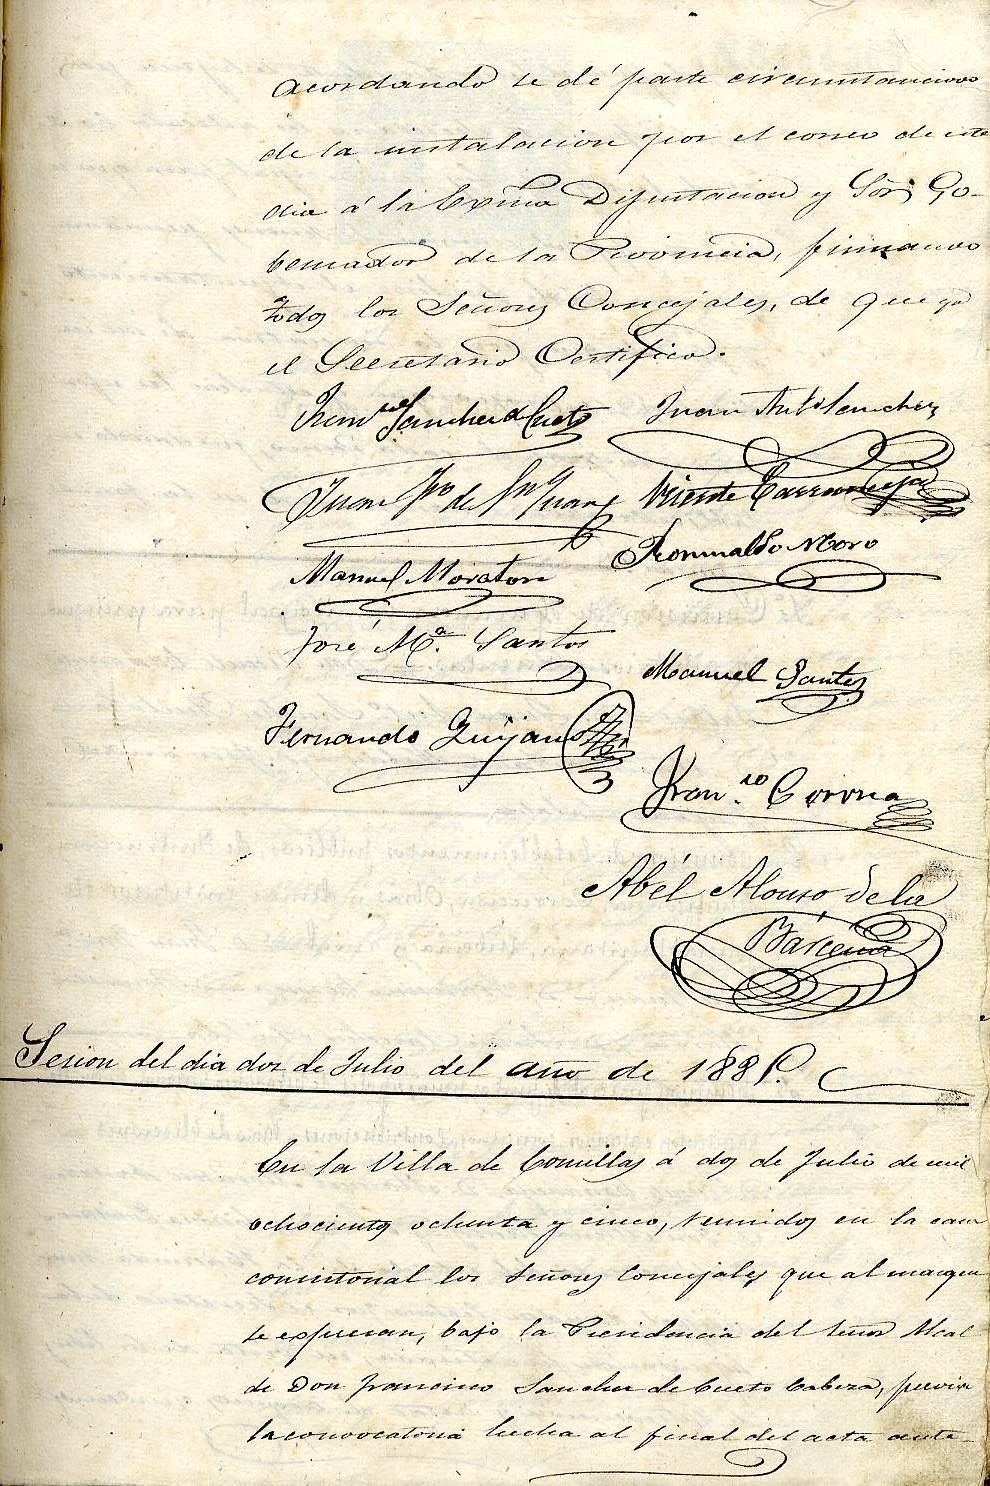 acordando se dé parte circunstanciado
de la instalacion por el correo de este
dia á la Exma Diputacion y Sõr Go-
bernador de la Provincia, firmando
todos los Señores Concejales, de que yo
el Secretario Certifico.
Franco Sanchez de Cueto Juan Ant Sanchez
Juan Fco de Sn Juan Vicente Carranceja
Manuel Moraton Romualdo Moro
José Ma. Santos
Manuel Santos
Fernando Quijano
Fran.co Corona
Abél Alonso de la
Bárcena
Sesion del dia dos de Julio del año de 1885.
En la Villa de Comillas á dos de Julio de mil
ochocientos ochenta y cinco, reunidos en la casa
consistorial los Señores Concejales que al margen
se espresan, bajo la Presidencia del Señor Alcal
de Don Francisco Sanchez de Cueto Cabeza, previa
la convocatoria hecha al final del acta ante-